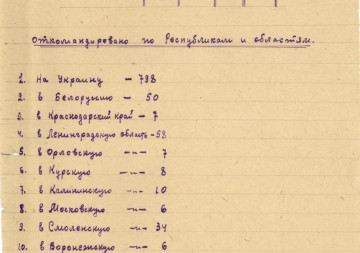 откомандировано по Республикам и областям.
1. На Украину — 798
2. в Белоруссию — 50
3. в Краснодарский край — 7
4. в Ленинградскую область — 58
5. в Орловскую —"— 7
6. в Курскую —"— 8
7. в Калининскую —"— 10
8. в Московскую —"— 6
9. в Смоленскую —"— 34
10. в Воронежскую —"— 6